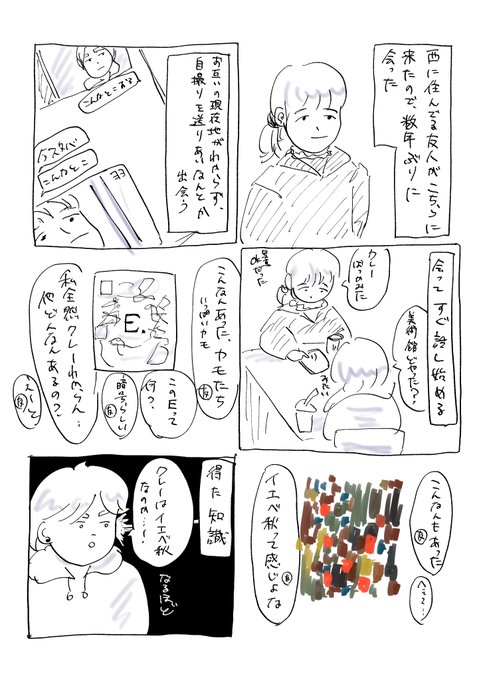 西に住んでる友人がこちらに
来たので、数年ぶりに
会った
お互いの現在地がわからず、
自撮りを送りあいなんとか
出会う
こんなとこある
スタバ
こんなとこ
33
会ってすぐ話し始める
美術館どやった?
クレー
ばっかみた
みたい
こんなんあった、カモたち
いっぱいカモ
友
E.
このEって
何?
暗号らしい
友
私全然クレーわからん…
他どんなんあるの?
えーと
友
こんなんもあった
友
へぇ〜…
イエベ秋って感じよな
友
得た知識
クレーはイエベ秋
なのか…!
なるほど